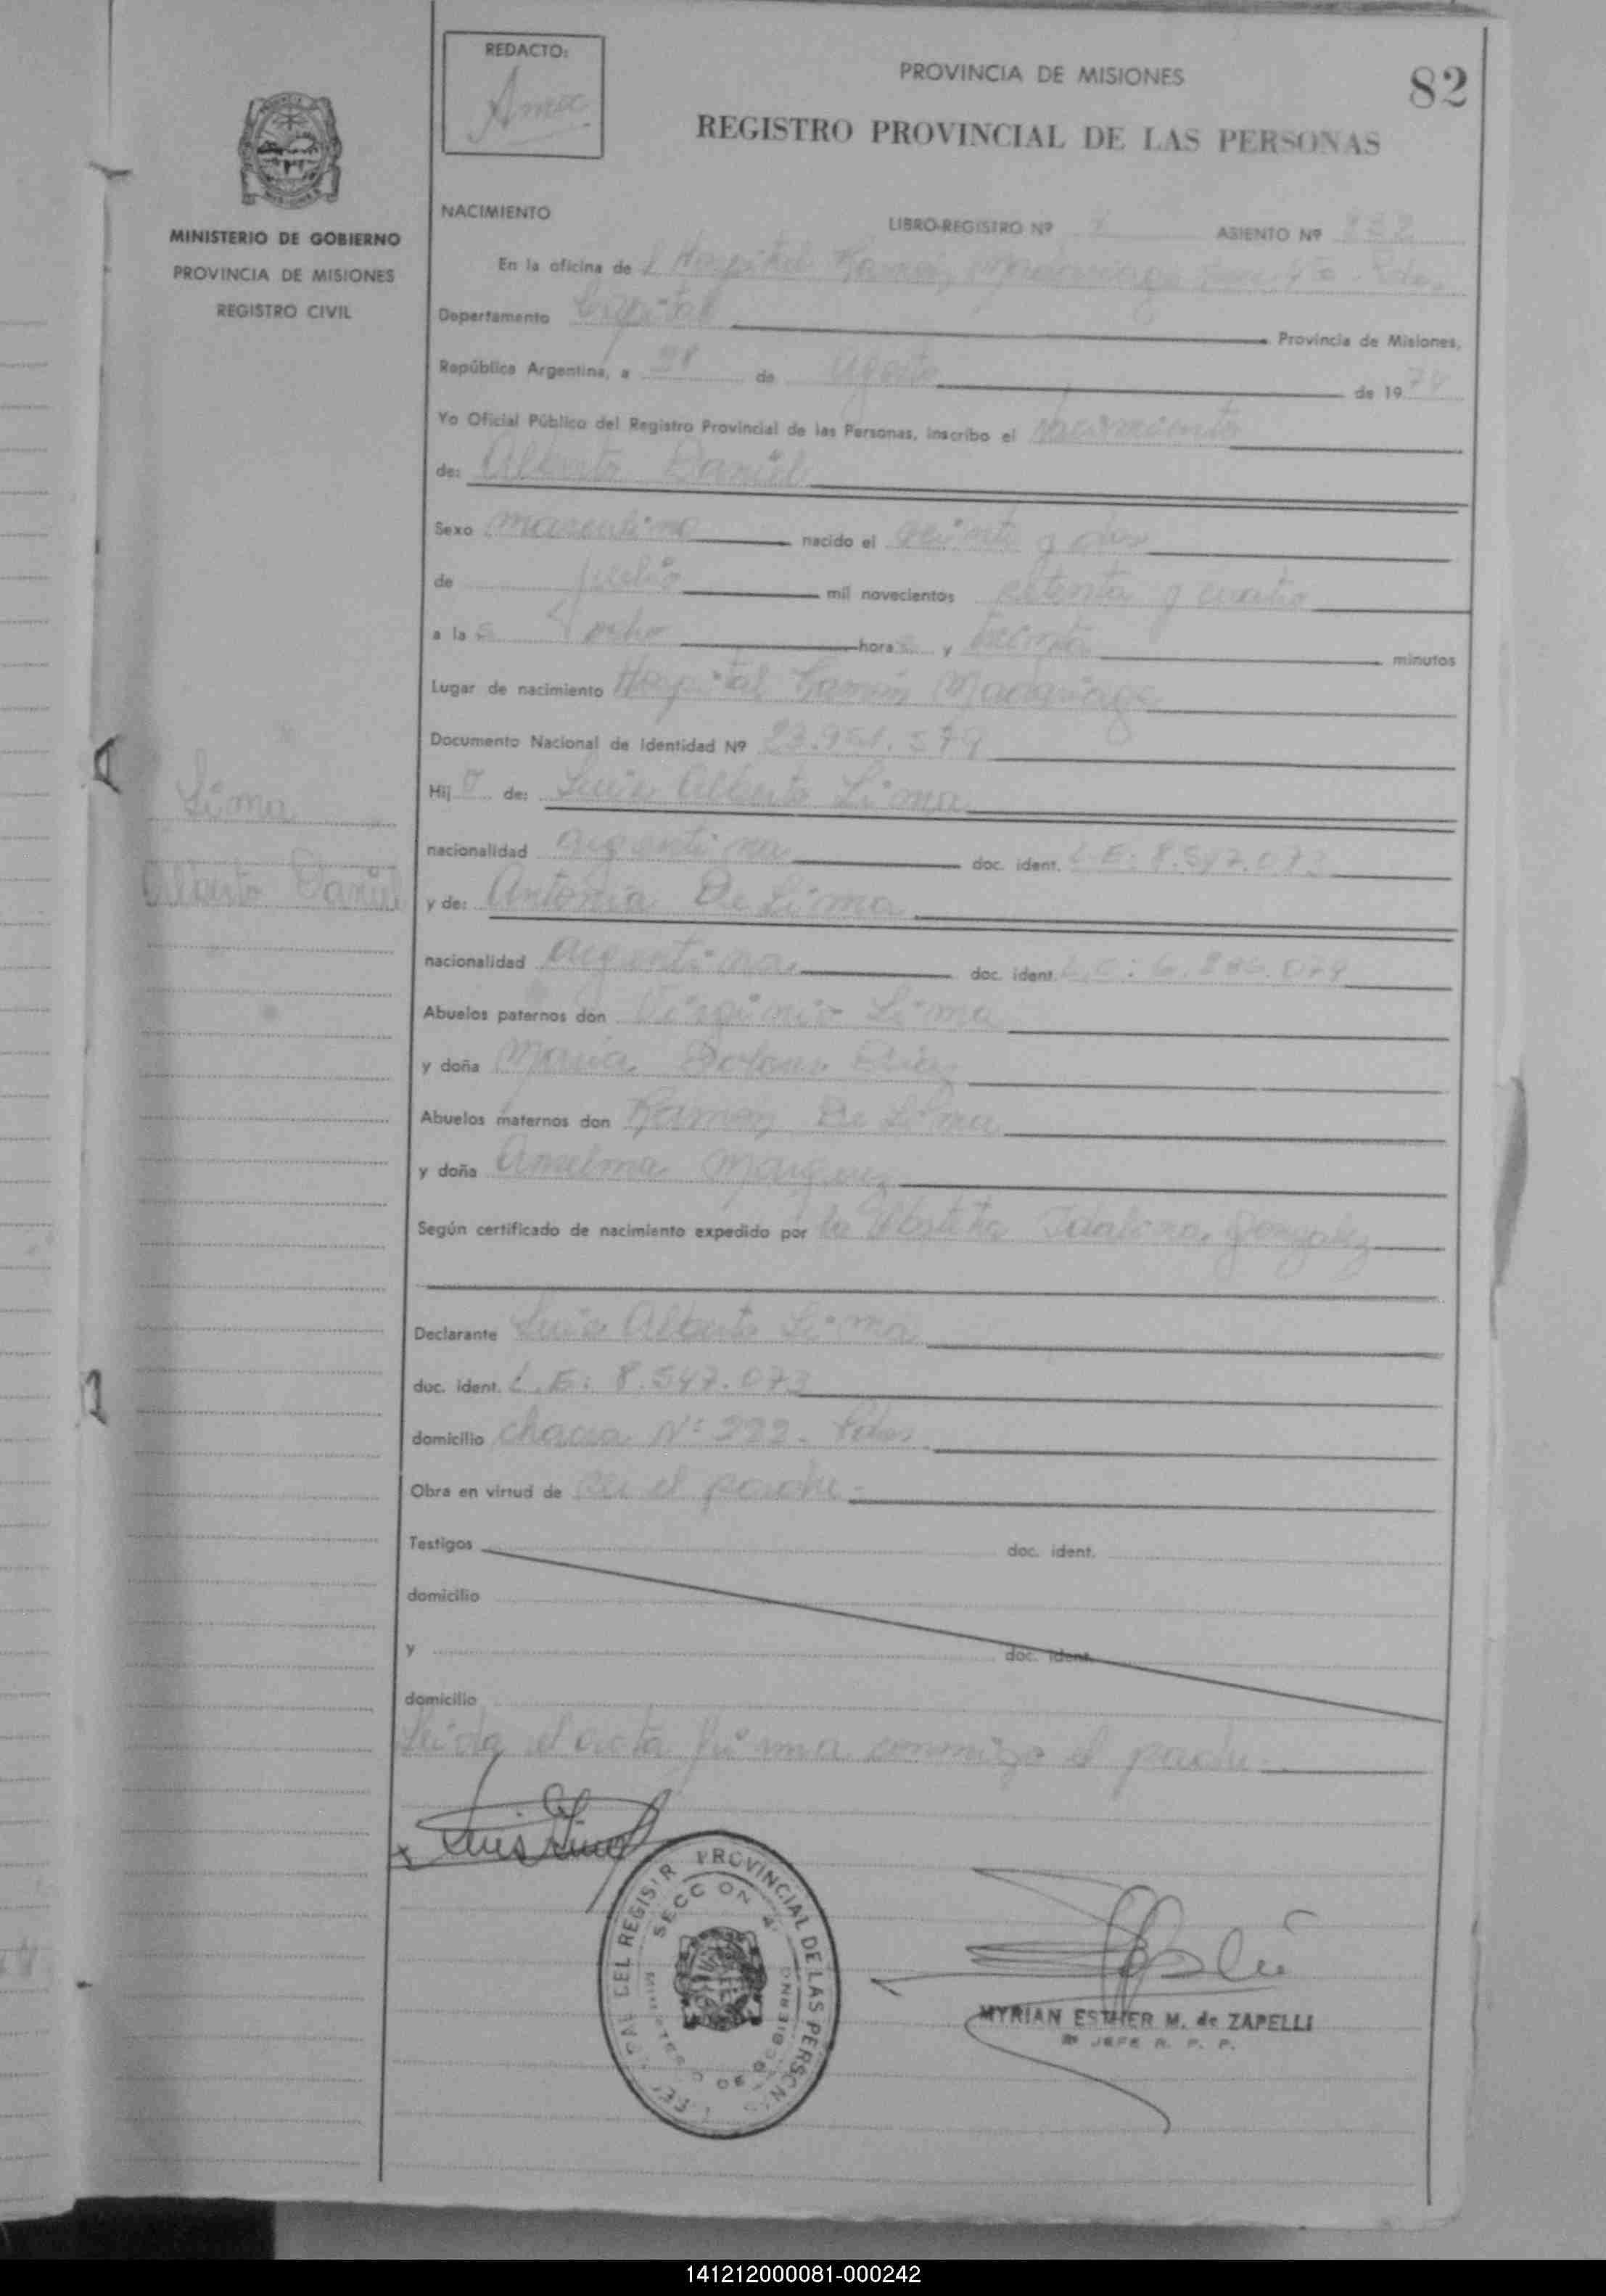 REDACTO:
PROVINCIA DE MISIONES
82
REGISTRO PROVINCIAL DE LAS PERSONAS
MINISTERIO DE GOBIERNO
PROVINCIA DE MISIONES
REGISTRO CIVIL
NACIMIENTO
LIBRO-REGISTRO Nº
ASIENTO Nº
En la oficina del Hospital Ramon Madariaga
Departamento Capital Provincia de Misiones,
República Argentina, a 28 de agosto de 1974
Yo Oficial Público del Registro Provincial de las Personas, inscribo el Nacimiento
de: Alberto Daniel
Sexo masculino nacido el veinti y dos
de julio mil novecientos setenta y cuatro
a las ocho horas y treinta minutos
Lugar de nacimiento Hospital Ramón Madariaga
Documento Nacional de Identidad Nº 23.951.579
Hijo de: Luis Alberto Lima
Lima
Alberto Daniel
nacionalidad argentina doc. ident. L.E: 8.547.073
y de: Antonia De Lima
nacionalidad argentina doc. ident. L.C: 6.
Abuelos paternos don Virginio Lima
y doña Maria
Abuelos maternos don Ramon De Lima
y doña Anselma Marquez
Según certificado de nacimiento expedido por la Obstetra Gonzalez
Declarante Luis Alberto Lima
doc. ident. L.E: 8.547.073
domicilio chacra Nº 222. Pdas
Obra en virtud de ser el padre.
Testigos doc. ident.
domicilio
y doc. ident.
domicilio
Leída el acta firma conmigo el padre.
Luis Lima
REGISTR PROVINCIAL DE LAS PERSONAS
SECCION 4
MYRIAN ESTHER M. de ZAPELLI
JEFE R. P. P.
141212000081-000242